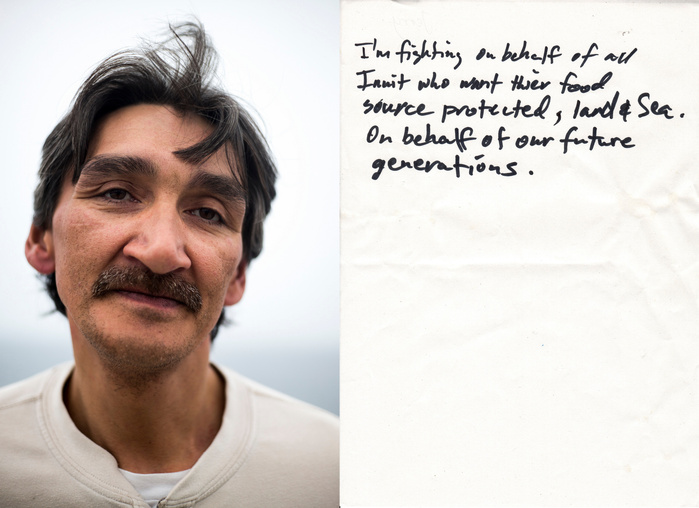 I'm fighting on behalf of all
Inuit who want thier food
source protected, land & Sea.
On behalf of our future
generations.